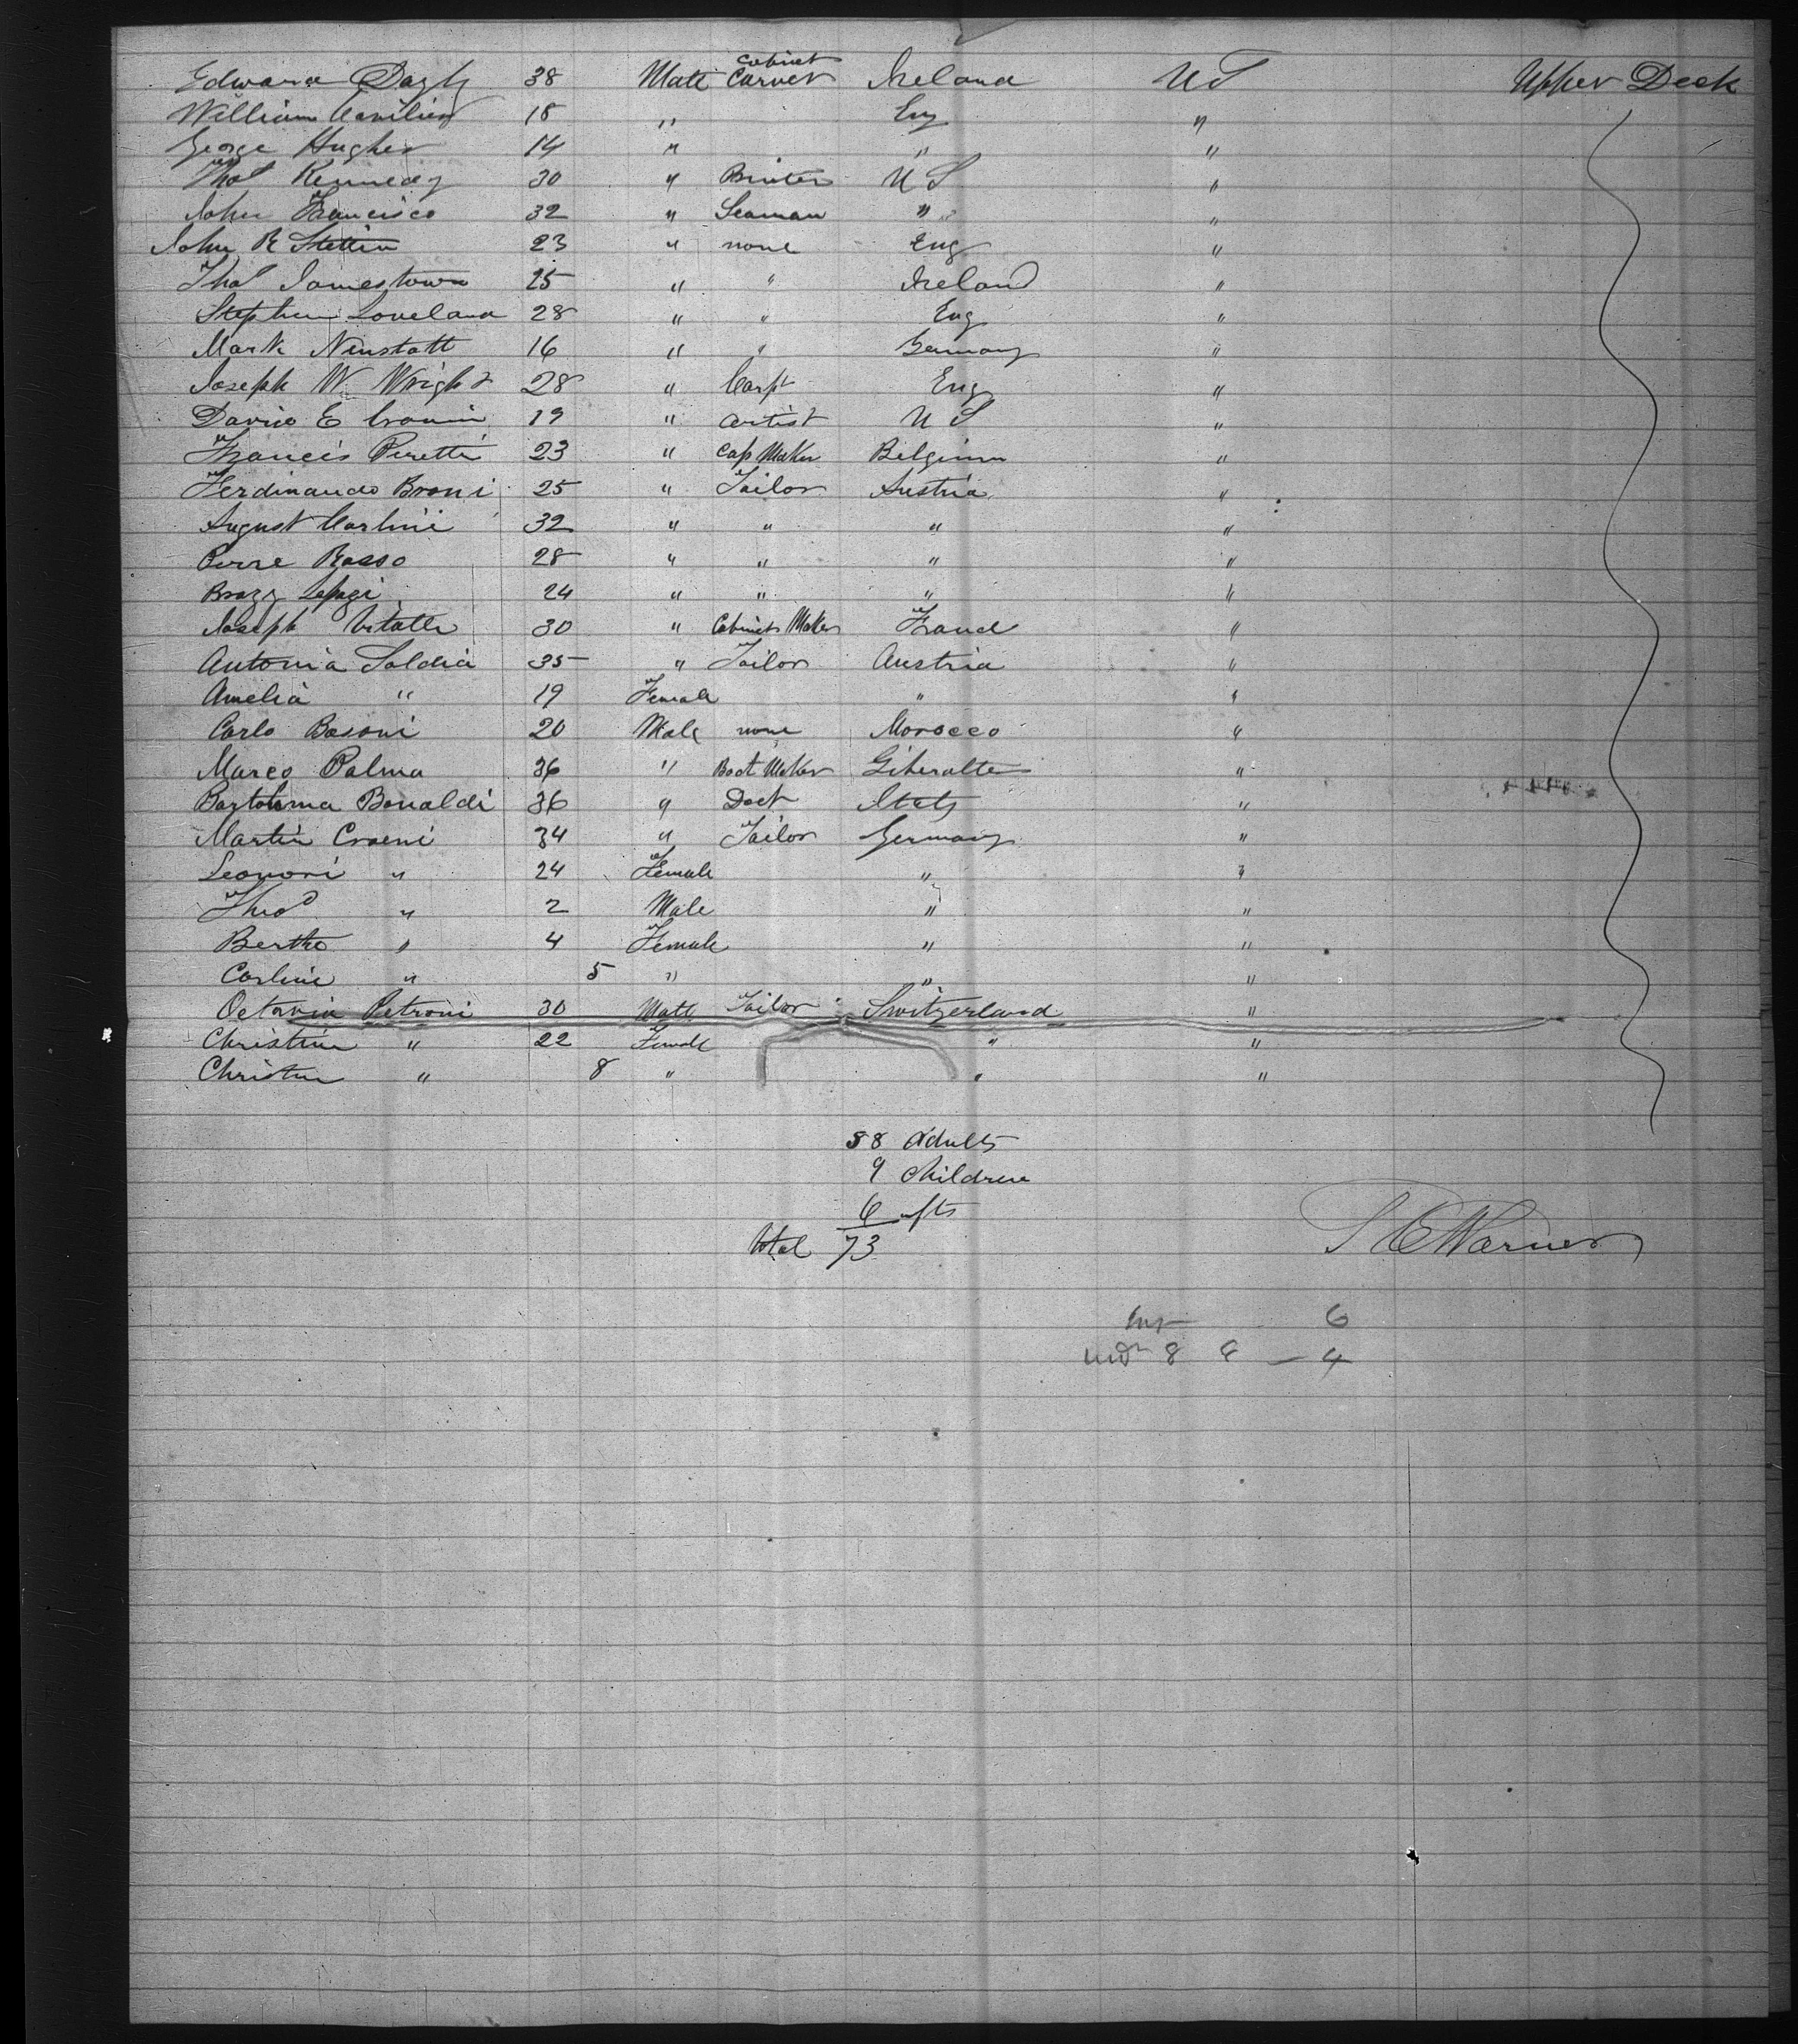 Edward Dayly 38 Male Cabinet Carver Ireland U S Upper Deck
William 18 " Eng "
George Hughes 14 " " "
Thos Kennedy 30 " Printer U S "
John Francisco 32 " Seaman " "
John R Stettin 23 " none Eng "
Thos Jamestown 25 " " Ireland "
Stephen Loveland 28 " " Eng "
Mark Neustatt 16 " " Germany "
Joseph W Wright 28 " Carpt Eng "
David E Cronin 19 " Artist U S "
Francis Peretti 23 " Cap Maker Belgium "
Ferdinando Broni 25 " Tailor Austria "
August Carlini 32 " " " "
Pierre Rosso 28 " " " "
Brazz 24 " " " "
Joseph Vitatti 30 " Cabinet Maker France "
Antonia Soldia 35 " Tailor Austria "
Amelia " 19 Female " "
Carlo Bosoni 20 Male none Morocco "
Marco Palma 36 " Boot Maker Giberalter "
Bartoloma Bonaldi 36 " Doct Italy "
Martin Croeni 34 " Tailor Germany "
Leonori " 24 Female " "
Theo " 2 Male " "
Bertha " 4 Female " "
Carlini " 5 " " "
Octavia Petroni 30 Male Tailor Switzerland "
Christine " 22 Female " "
Christine " 8 " " "
58 Adults
9 Children
6 infts
Total 73
S E Warner
6
8 4